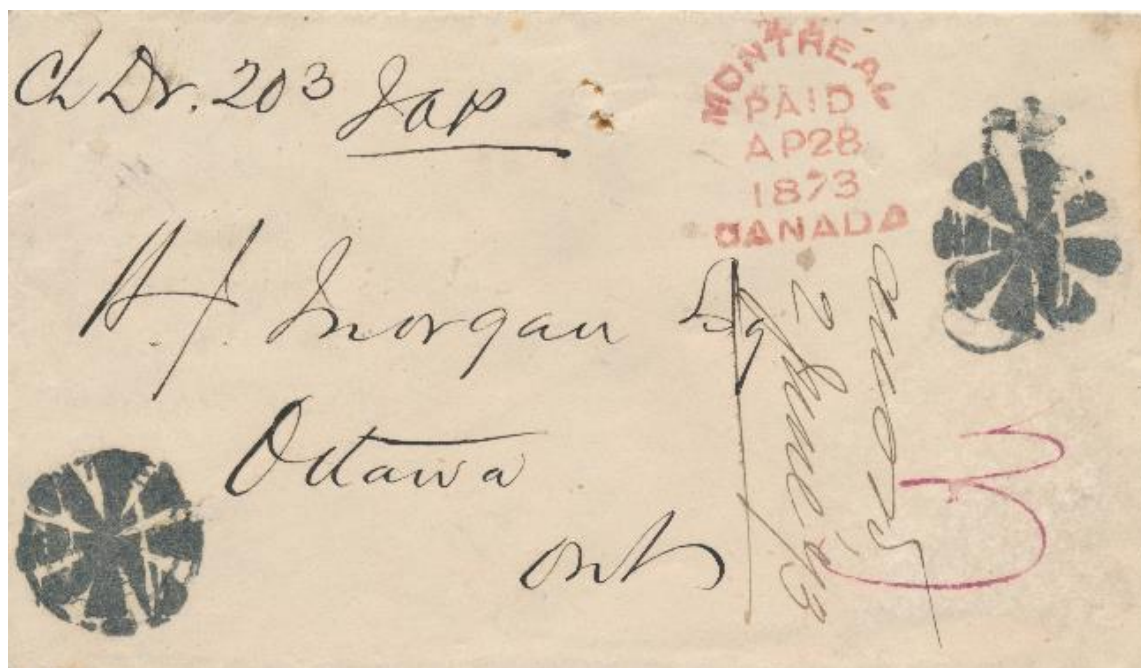 Ch Dr. 203
MONTREAL
PAID
AP28
1873
CANADA
H.J. Morgan Esq
Ottawa
Ont
2 June 73
3